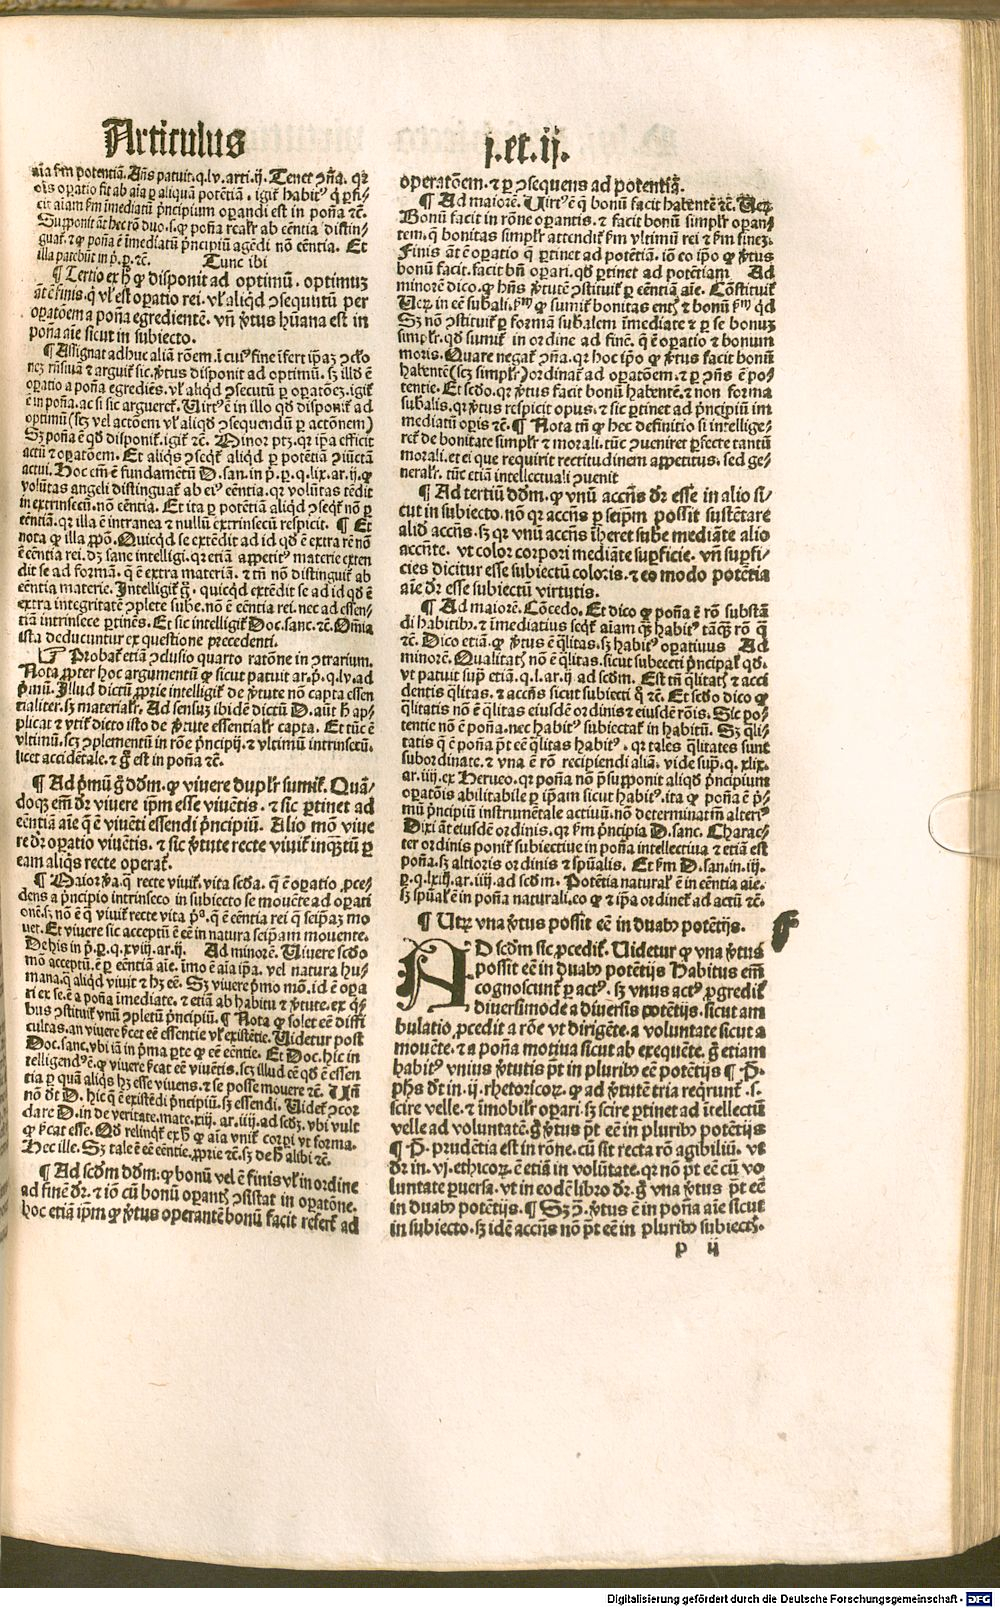 Articulus
j.et.ij.
aīa ẜm potentiā. Añs patuit.q.lv.arti.ij. Tenet ↄña. qꝛ
oīs oꝑatio fit ab aīa ꝑ aliquā potētiā. igiť habit⁹
cit aīam ẜm īmediatū pͥncipium oꝑandi est in poña ⁊č.
Supponit āt hec rō duo.s.ꝙ poña realr̄ ab eēntia distin-
guať.⁊ ꝙ poña ē īmediatū pͥncipiū agēdi nō eēntia. Et
illa patebūt in p̄.ꝑ.⁊č. Tunc ibi
¶ Tertio ex h̄ ꝙ disponit ad optimū. optimuȝ
āt ē finis.q̄ vl̓ est oꝑatio rei. vl̓ aliqd̓ ↄsequutū per
oꝑatōem a poña egredientē. vñ v̓tus hūana est in
poña aīe sicut in subiecto.
¶ Assignat adhuc aliā rōem.
⁊ arguiť sic. v̓tus disponit ad optimū. sȝ illd̓ ē
oꝑatio a poña egrediēs. vl̓ aliqd̓ ↄsecutū ꝑ oꝑatōeȝ. igiť
ē in poña. ac si sic argueret̄. Uirt⁹ ē in illo qd̓ disponit̄ ad
optimū (scȝ vel actōem vl̓ aliqd̓ ↄsequendū ꝑ actōnem)
Sȝ poña ē qd̓ disponit̄. igiť ⁊č. Minor ptȝ. qꝛ ip̄a efficit
actū ⁊ oꝑatōem. Et aliqs ↄseqt̄ aliqd̓ ꝑ potētiā ↄiūctā
actui. Hoc em̄ ē fundamētū D. san. in p̄.ꝑ.q.lix.ar.ij. ꝙ
volūtas angeli distinguať ab ei⁹ eēntia. qꝛ volūtas tēdit
in extrinsecū. nō eēntia. Et ita ꝑ potētiā aliqd̓ ↄseqt̄ nō ꝑ
eēntiā. qꝛ illa ē intranea ⁊ nullū extrinsecū respicit. ¶ Et
nota ꝙ illa ꝓpō. Quicqd̓ se extēdit ad id qd̓ ē extra rē nō
ē eēntia rei. dȝ sane intelligi. qꝛ etiā appetit⁹ materie exten
dit se ad formā. q̄ ē extra materiā. ⁊ tn̄ nō distinguiť ab
eēntia materie. Intelligiť g̊. quicqd̓ extēdit se ad id qd̓ ē
extra integritatē ↄplete sube. nō ē eēntia rei. nec ad essen-
tiā intrinsece ꝑtinēs. Et sic intelligiť Doc. sanc. ⁊č. Om̄ia
ista deducuntur ex questione precedenti.
☞ Probat̄ etiā ↄclusio quarto ratōne in ↄtrarium.
Nota ꝓpter hoc argumentū ꝙ sicut patuit ar.p̄.q.lv.ad
pͥmū. Illud dictū ꝓprie intelligiť de v̓tute nō capta essen
tialiter. sȝ materialr̄. Ad sensuȝ ibidē dictū D. aūt h̄ ap-
plicat ⁊ vtiť dicto isto de v̓tute essentialr̄ capta. Et tūc ē
vltimū. scȝ ↄplementū in rōe pͥncipij. ⁊ vltimū intrinsecū.
licet accidētale. ⁊ g̊ est in poña ⁊č.
¶ Ad pͥmū g̊ dd̓m. ꝙ viuere duplr̄ sumiť. Quā-
doqȝ em̄ dr̄ viuere ip̄m esse viuētis. ⁊ sic ꝑtinet ad
eēntiā aīe q̄ ē viuēti essendi pͥncipiū. Alio mō viue
re dr̄ oꝑatio viuētis. ⁊ sic v̓tute recte viuiť inqȝtū ꝑ
eam aliqs recte operať.
¶ Maior v̓a. q̄ recte viuiť. vita scd̓a. q̄ ē oꝑatio ꝓce-
dens a pͥncipio intrinseco in subiecto se mouēte ad oꝑati
onē. sȝ nō ē q̄ viuiť recte vita pͥª. q̄ ē eēntia rei q̄ seip̄aȝ mo
uet. Et viuere sic acceptū ē eē in natura seip̄am mouente.
De his in p̄.ꝑ.q.xviij.ar.ij. Ad minorē. Uiuere scd̓o
mō acceptū. ē ꝑ eēntiam aīe. īmo ē aīa ip̄a. vel natura hu-
mana. q̄ aliqd̓ viuit ⁊ hȝ eē. Sȝ viuere pͥmo mō. id ē oꝑa
ti ex se. ē a poña īmediate. ⁊ etiā ab habitu ⁊ v̓tute. ex q̓-
bus ↄstituiť vnū ↄpletū pͥncipiū. ¶ Nota ꝙ solet eē diffi
cultas. an viuere p̄cet eē essentie vl̓ existētie. Uidetur post
Doc. sanc. vbi iā in pͥma ꝑte ꝙ eē eēntie. Et Doc. hic in
telligend⁹ ē. ꝙ viuere p̄cat eē viuētis. scȝ illud eē qd̓ ē essen
tia ꝑ quā aliqs hȝ esse viuens. ⁊ se posse mouere ⁊č. Uñ
nō dt̄ D. hic q̄ ē existēdi pͥncipiū. sȝ essendi. Uideť ↄcor
dare D. in de veritate. mate.xiij.ar.iiij.ad scd̓ȝ. vbi vult
ꝙ p̄cat esse. Qd̓ relinqť ex h̄ ꝙ aīa vniť corpi vt forma.
Hec ille. Sȝ tale ē eē eēntie. ꝓprie ⁊č. sȝ de h̄ alibi ⁊č.
¶ Ad scd̓m dd̓m. ꝙ bonū vel ē finis vl̓ in ordine
ad finē dr̄. ⁊ iō cū bonū oꝑantꝭ ↄsistat in oꝑatōne.
hoc etiā ip̄m ꝙ v̓tus operantē bonū facit referť ad
operatōem. ⁊ ꝑ ↄsequens ad potentiā.
¶ Ad maiorē. Uirt⁹ ē q̄ bonū facit habentē ⁊č. Ueꝝ
Bonū facit in rōne oꝑantis. ⁊ facit bonū simplr̄ oꝑan-
tem. q̄ bonitas simplr̄ attendiť ẜm vltimū rei ⁊ ẜm fineȝ.
Finis āt ē oꝑatio q̄ ꝑtinet ad potētiā. iō eo ip̄o ꝙ v̓tus
bonū facit. facit bn̄ oꝑari. qd̓ ꝑtinet ad potētiam Ad
minorē dico. ꝙ hn̄s v̓tutē ↄstituiť ꝑ eēntiā aīe. Cōstituiť
Ueꝝ in eē subali. ẜm ꝙ sumiť bonitas entꝭ ⁊ bonū ẜm qd̓
Sȝ nō ↄstituiť ꝑ formā subalem īmediate ⁊ ꝑ se bonuȝ
simplr̄. qd̓ sumiť in ordine ad finē. q̄ ē oꝑatio ⁊ bonum
moris. Quare negať ↄña. qꝛ hoc ip̄o ꝙ v̓tus facit bonū
habentē (scȝ simplr̄) ordinať ad oꝑatōem. ⁊ ꝑ ↄn̄s ē po-
tentie. Et scd̓o. qꝛ v̓tus facit bonū habentē. ⁊ non forma
subalis. qꝛ v̓tus respicit opus. ⁊ sic ꝑtinet ad pͥncipiū im
mediatū oꝑis ⁊č. ¶ Nota tn̄ ꝙ hec definitio si intellige-
reť de bonitate simplr̄ ⁊ morali. tūc ↄueniret ꝑfecte tantū
morali. et ei que requirit rectitudinem appetitus. sed ge-
neralr̄. tūc etiā intellectuali ↄuenit
¶ Ad tertiū dd̓m. ꝙ vnū accn̄s dr̄ esse in alio si-
cut in subiecto. nō qꝛ accn̄s ꝑ seip̄m possit sustētare
aliđ accn̄s. sȝ qꝛ vnū accn̄s īheret sube mediāte alio
accn̄te. vt color corpori mediāte suꝑficie. vñ suꝑfi-
cies dicitur esse subiectū coloris. ⁊ eo modo potētia
aīe dr̄ esse subiectū virtutis.
¶ Ad maiorē. Cōcedo. Et dico ꝙ poña ē rō substā
di habitibꝰ. ⁊ īmediatius seqť aīam qȝ habit⁹ tāqȝ rō q̄
⁊č. Dico etiā. ꝙ v̓tus ē q̄litas. sȝ habit⁹ oꝑatiuus Ad
minorē. Qualitatꝭ nō ē q̄litas. sicut subiecti pͥncipať qd̓.
vt patuit sup̄ etiā.q.l.ar.ij ad scd̓m. Est tn̄ q̄litatꝭ ⁊ acci
dentis q̄litas. ⁊ accn̄s sicut subiecti q̊ ⁊č. Et scd̓o dico ꝙ
q̄litatis nō ē q̄litas eiusdē ordinis ⁊ eiusdē rōis. Sic po-
tentie nō ē poña. nec habit⁹ subiectať in habitū. Sȝ q̄li-
tatis q̄ ē poña pt̄ eē q̄litas habit⁹. qꝛ tales q̄litates sunt
subordinate. ⁊ vna ē rō recipiendi aliā. vide sup̄.q.xlix.
ar.iiij.ex Herueo. qꝛ poña nō p̄supponit aliqd̓ pͥncipium
oꝑatōis abilitabile ꝑ ip̄am sicut habit⁹. ita ꝙ poña ē pͥ-
mū pͥncipiū instrumētale actiuū. nō determinatm̄ alteri⁹
Dixi āt eiusdē ordinis. qꝛ ẜm pͥncipia D. sanc. Charac-
ter ordinis poniť subiectiue in poña intellectiua ⁊ etiā est
poña. sȝ altioris ordinis ⁊ spūalis. Et ẜm D. san. in .iij.
ꝑ.q.lxiij.ar.iiij.ad scd̓m. Potētia naturať ē in eēntia aīe.
sȝ spūal̓ ē in poña naturali. eo ꝙ ⁊ ip̄a ordineť ad actū ⁊č.
¶ Utꝝ vna v̓tus possit eē in duabꝰ potētijs.
AD scd̓m sic ꝓcediť. Uidetur ꝙ vna v̓tus
possit eē in duabꝰ potētijs Habitus em̄
cognoscunť ꝑ act⁹. sȝ vnus act⁹ ꝓgrediť
diuersimode a diuersis potētijs. sicut am
bulatio ꝓcedit a rōe vt dirigēte. a voluntate sicut a
mouēte. ⁊ a poña motiua sicut ab exequēte. g̊ etiam
habit⁹ vnius v̓tutis pt̄ in pluribꝰ eē potētijs ¶ P̄.
ph̓s dt̄ in .ij. rhetoricoꝝ. ꝙ ad v̓tutē tria reqrunť .s.
scire velle. ⁊ īmobilr̄ oꝑari. sȝ scire ꝑtinet ad ītellectū
velle ad voluntatē. g̊ v̓tus pt̄ eē in pluribꝰ potētijs
¶ P̄. prudētia est in rōne. cū sit recta rō agibiliū. vt
dr̄ in .vj. ethicoꝝ. ē etiā in volūtate. qꝛ nō pt̄ eē cū vo
luntate ꝑuersa. vt in eodē libro dr̄. g̊ vna v̓tus pt̄ eē
in duabꝰ potētijs. ¶ Sȝ ↄ̄. v̓tus ē in poña aīe sicut
in subiecto. sȝ idē accn̄s nō pt̄ eē in pluribꝰ subiectꝭ.
p ij
Digitalisierung gefördert durch die Deutsche Forschungsgemeinschaft - DFG